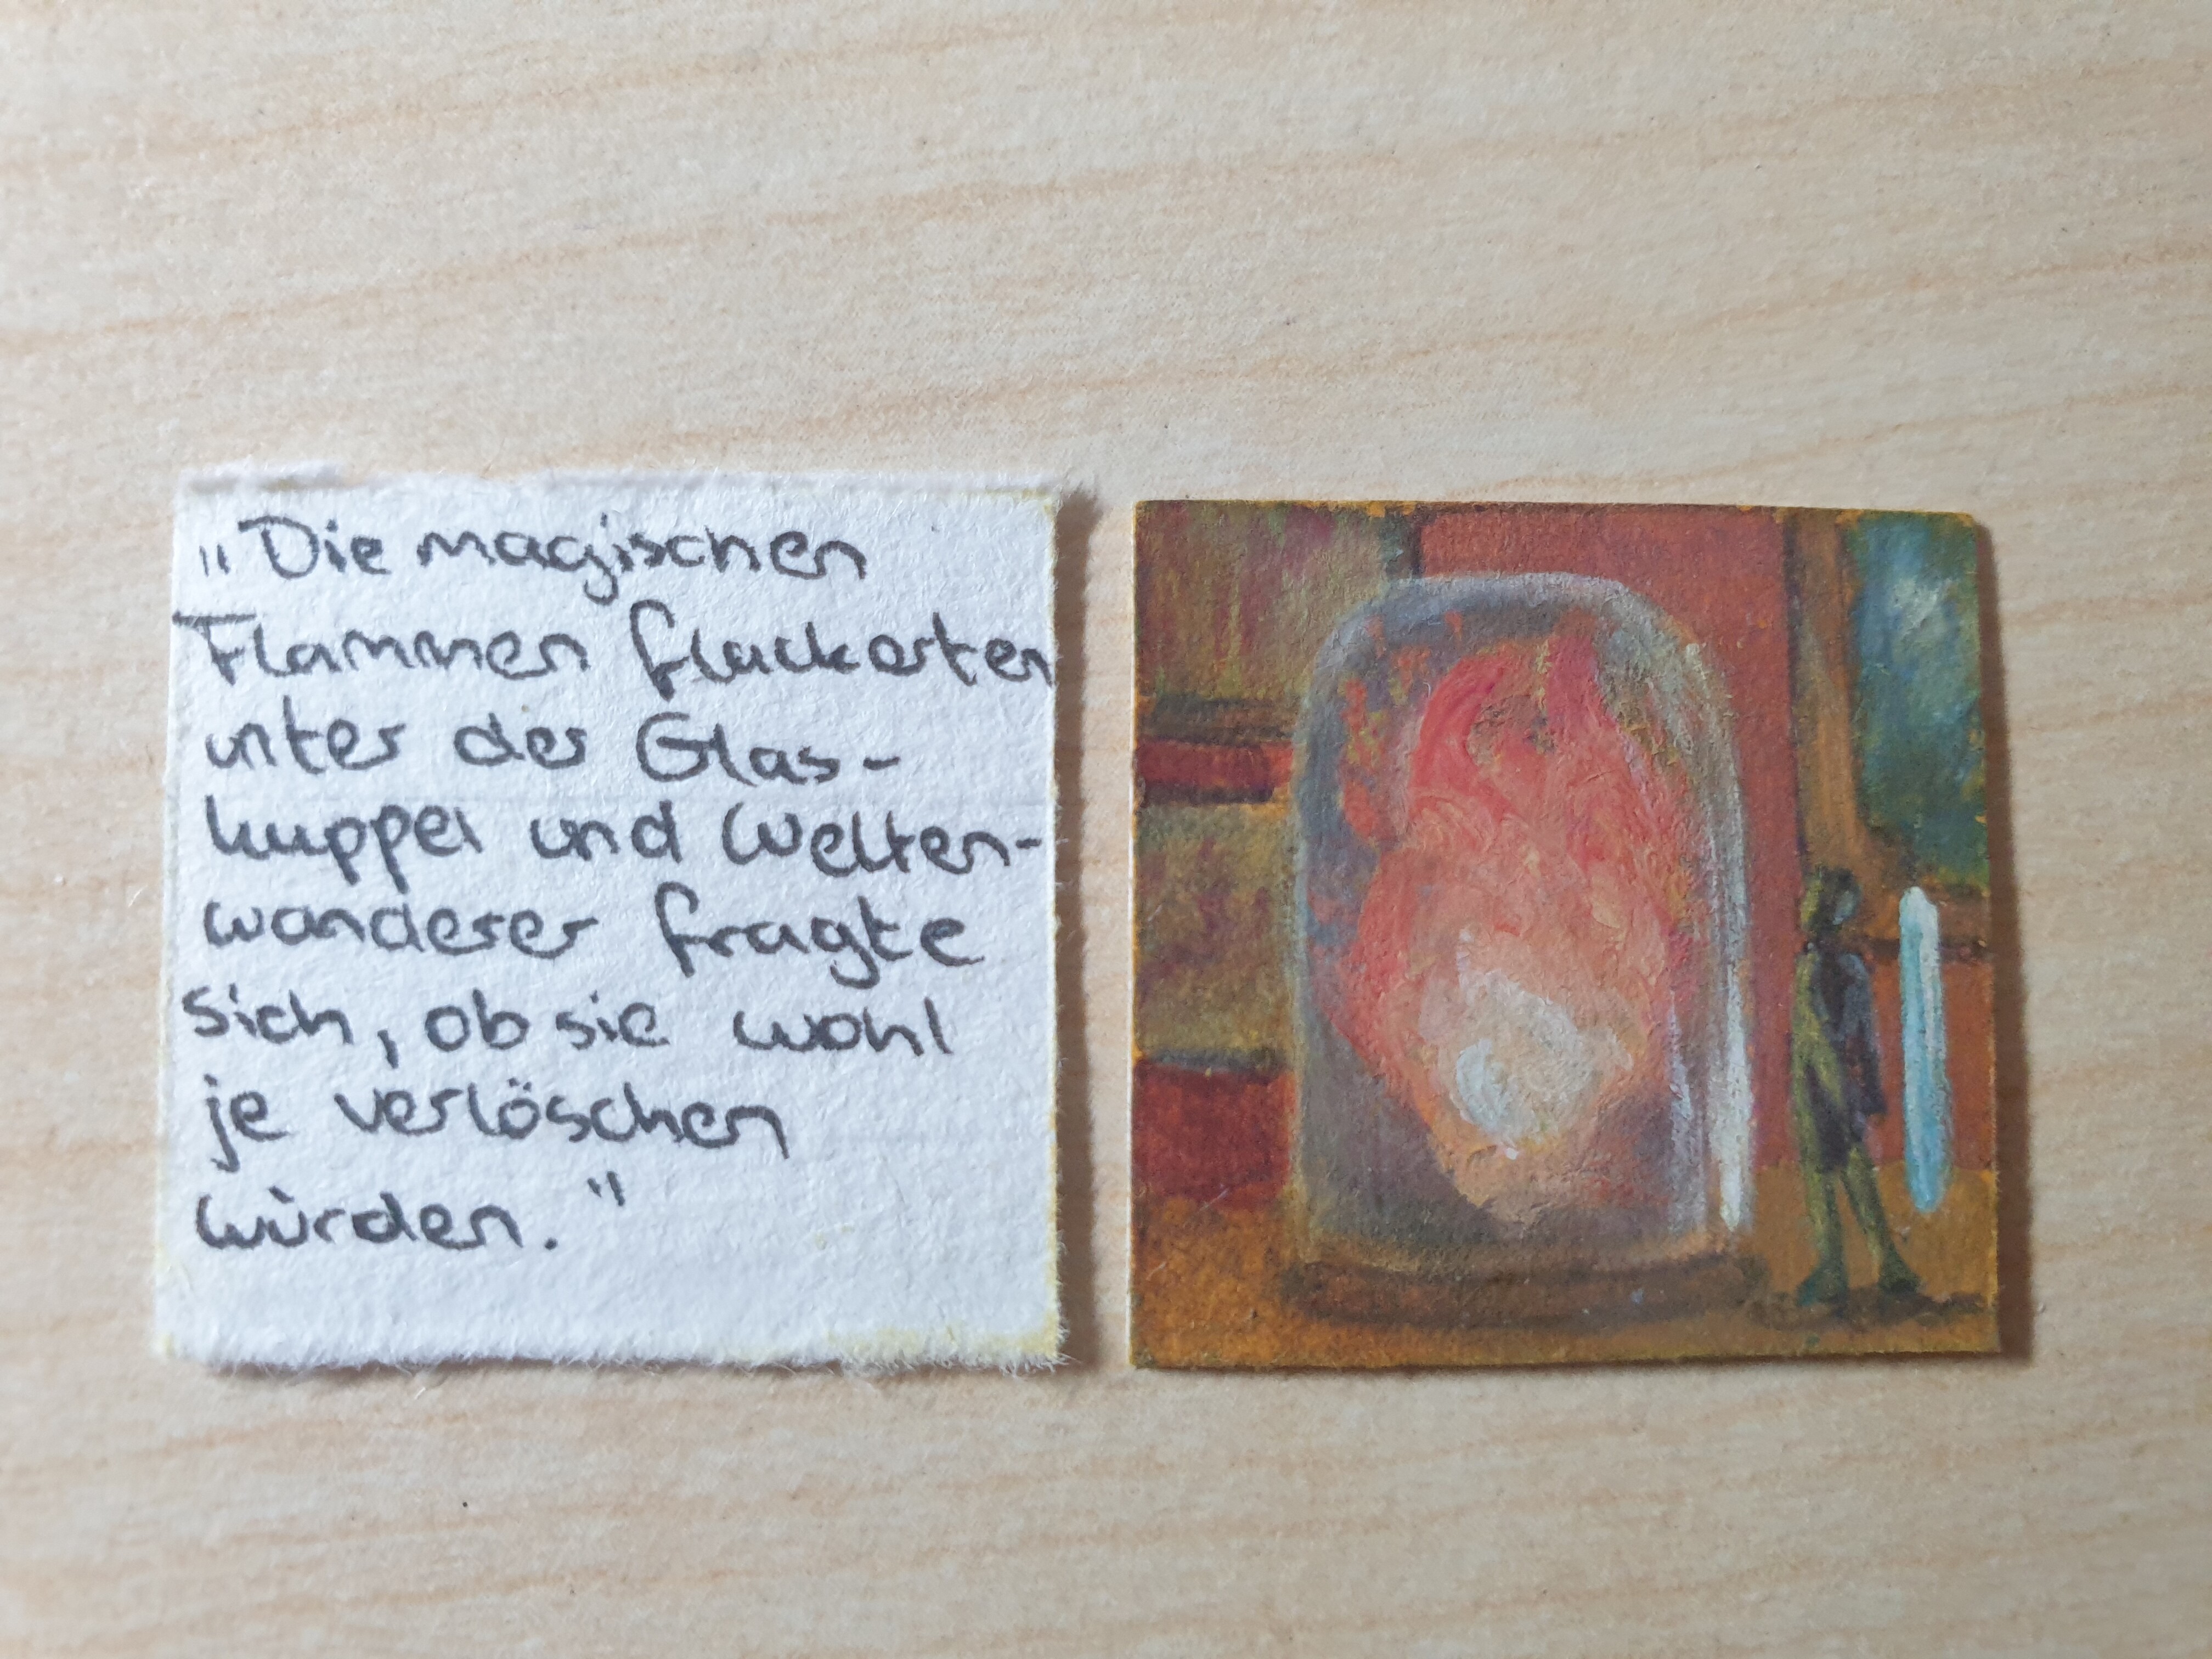 „Die magischen
Flammen flackerten
unter der Glas-
kuppel und Welten-
wanderer fragte
sich, ob sie wohl
je verlöschen
würden."